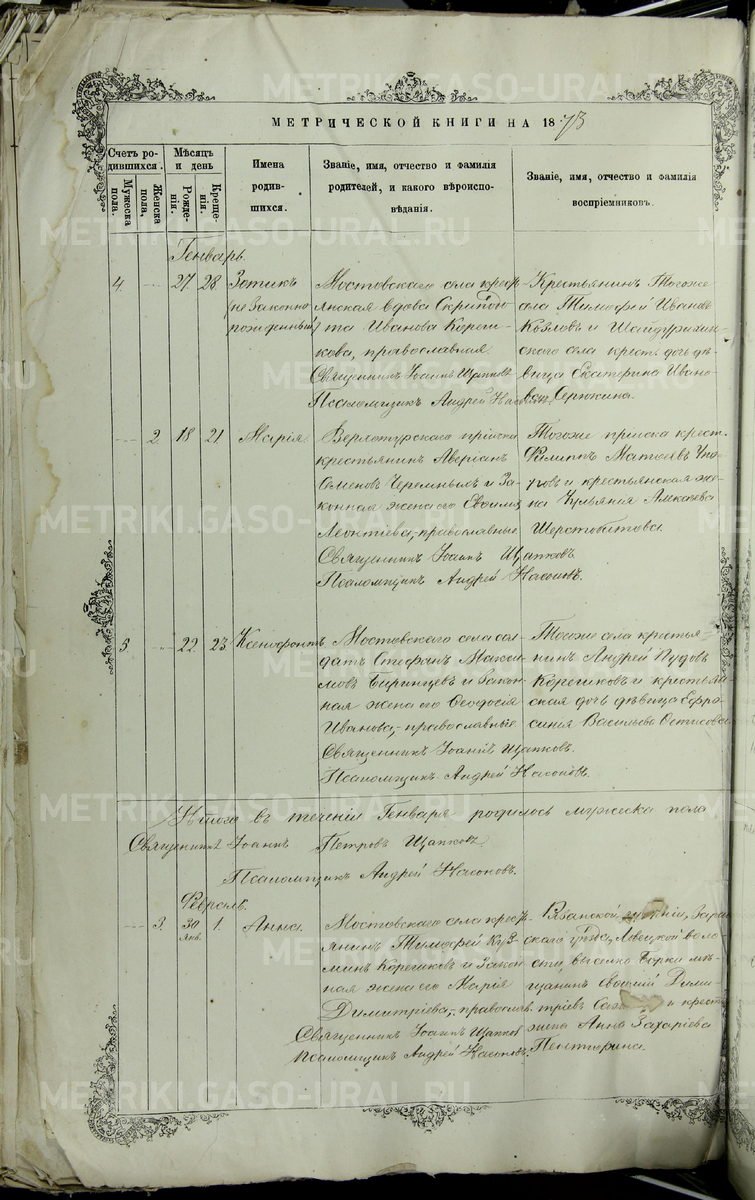 МЕТРИЧЕСКОЙ КНИГИ НА 1873
Счетъ родившихся.
Мужеска пола.
Женска пола.
Мѣсяцъ и день
Рожденія.
Крещенія.
Имена родившихся.
Званіе, имя, отчество и фамилія родителей, и какого вѣроисповѣданія.
Званіе, имя, отчество и фамилія воспріемниковъ.
Генварь
4. 27 28 Зотикъ
(не законно
рожденный)
Мостовскаго села крестьянская
вдова
та Иванова Кореш-
кова, православная
Священникъ Іоаннъ Щапковъ
Псаломщикъ Андрей Насоновъ
Крестьянинъ Тогоже
села Тимофей Ивановъ
Козловъ и Шайдурихин-
скаго села крест. дочь дѣ-
вица Екатерина Ивано-
ва Серюкина.
2. 18 21 Марія
Верхотурскаго пріиска
крестьянинъ Аверіанъ
Семеновъ Черемныхъ и за-
конная жена его
Леонтіева, православные
Священникъ Іоаннъ Щапковъ
Псаломщикъ Андрей Насоновъ.
Тогоже пріиска крест.
Филиппъ Матвеевъ
и крестьянская же-
на Алексеева
Шерстобитова.
5 22 23 Ксенофонтъ
Мостовскаго села сол-
датъ Стефанъ Макси-
мовъ Биринцевъ и закон-
ная жена его Ѳеодосія
Иванова, православные
Священникъ Іоаннъ Щапковъ.
Псаломщикъ Андрей Насоновъ.
Тогоже села крестья-
нинъ Андрей Пудовъ
Корешковъ и крестьян-
ская дочь дѣвица Ефро-
синія Васильева
Итого въ теченіи Генваря родилось мужеска пола
Священникъ Іоаннъ Петровъ Щапковъ
Псаломщикъ Андрей Насоновъ.
Февраль.
3. 30 Янв. 1. Анна
Мостовскаго села крест-
янинъ Тимофей Куз-
минъ Корешковъ и закон-
ная жена его Марія
Димитріева, православ.
Священникъ Іоаннъ Щапковъ
Псаломщикъ Андрей Насоновъ.
Рязанской губерніи, Зарай-
скаго уѣзда, Ловецкой воло-
сти, выселка Борки мѣ-
щанинъ Дими-
тріевъ и крест.
жена Анна Захаріева
METRIKI.GASO-URAL.RU